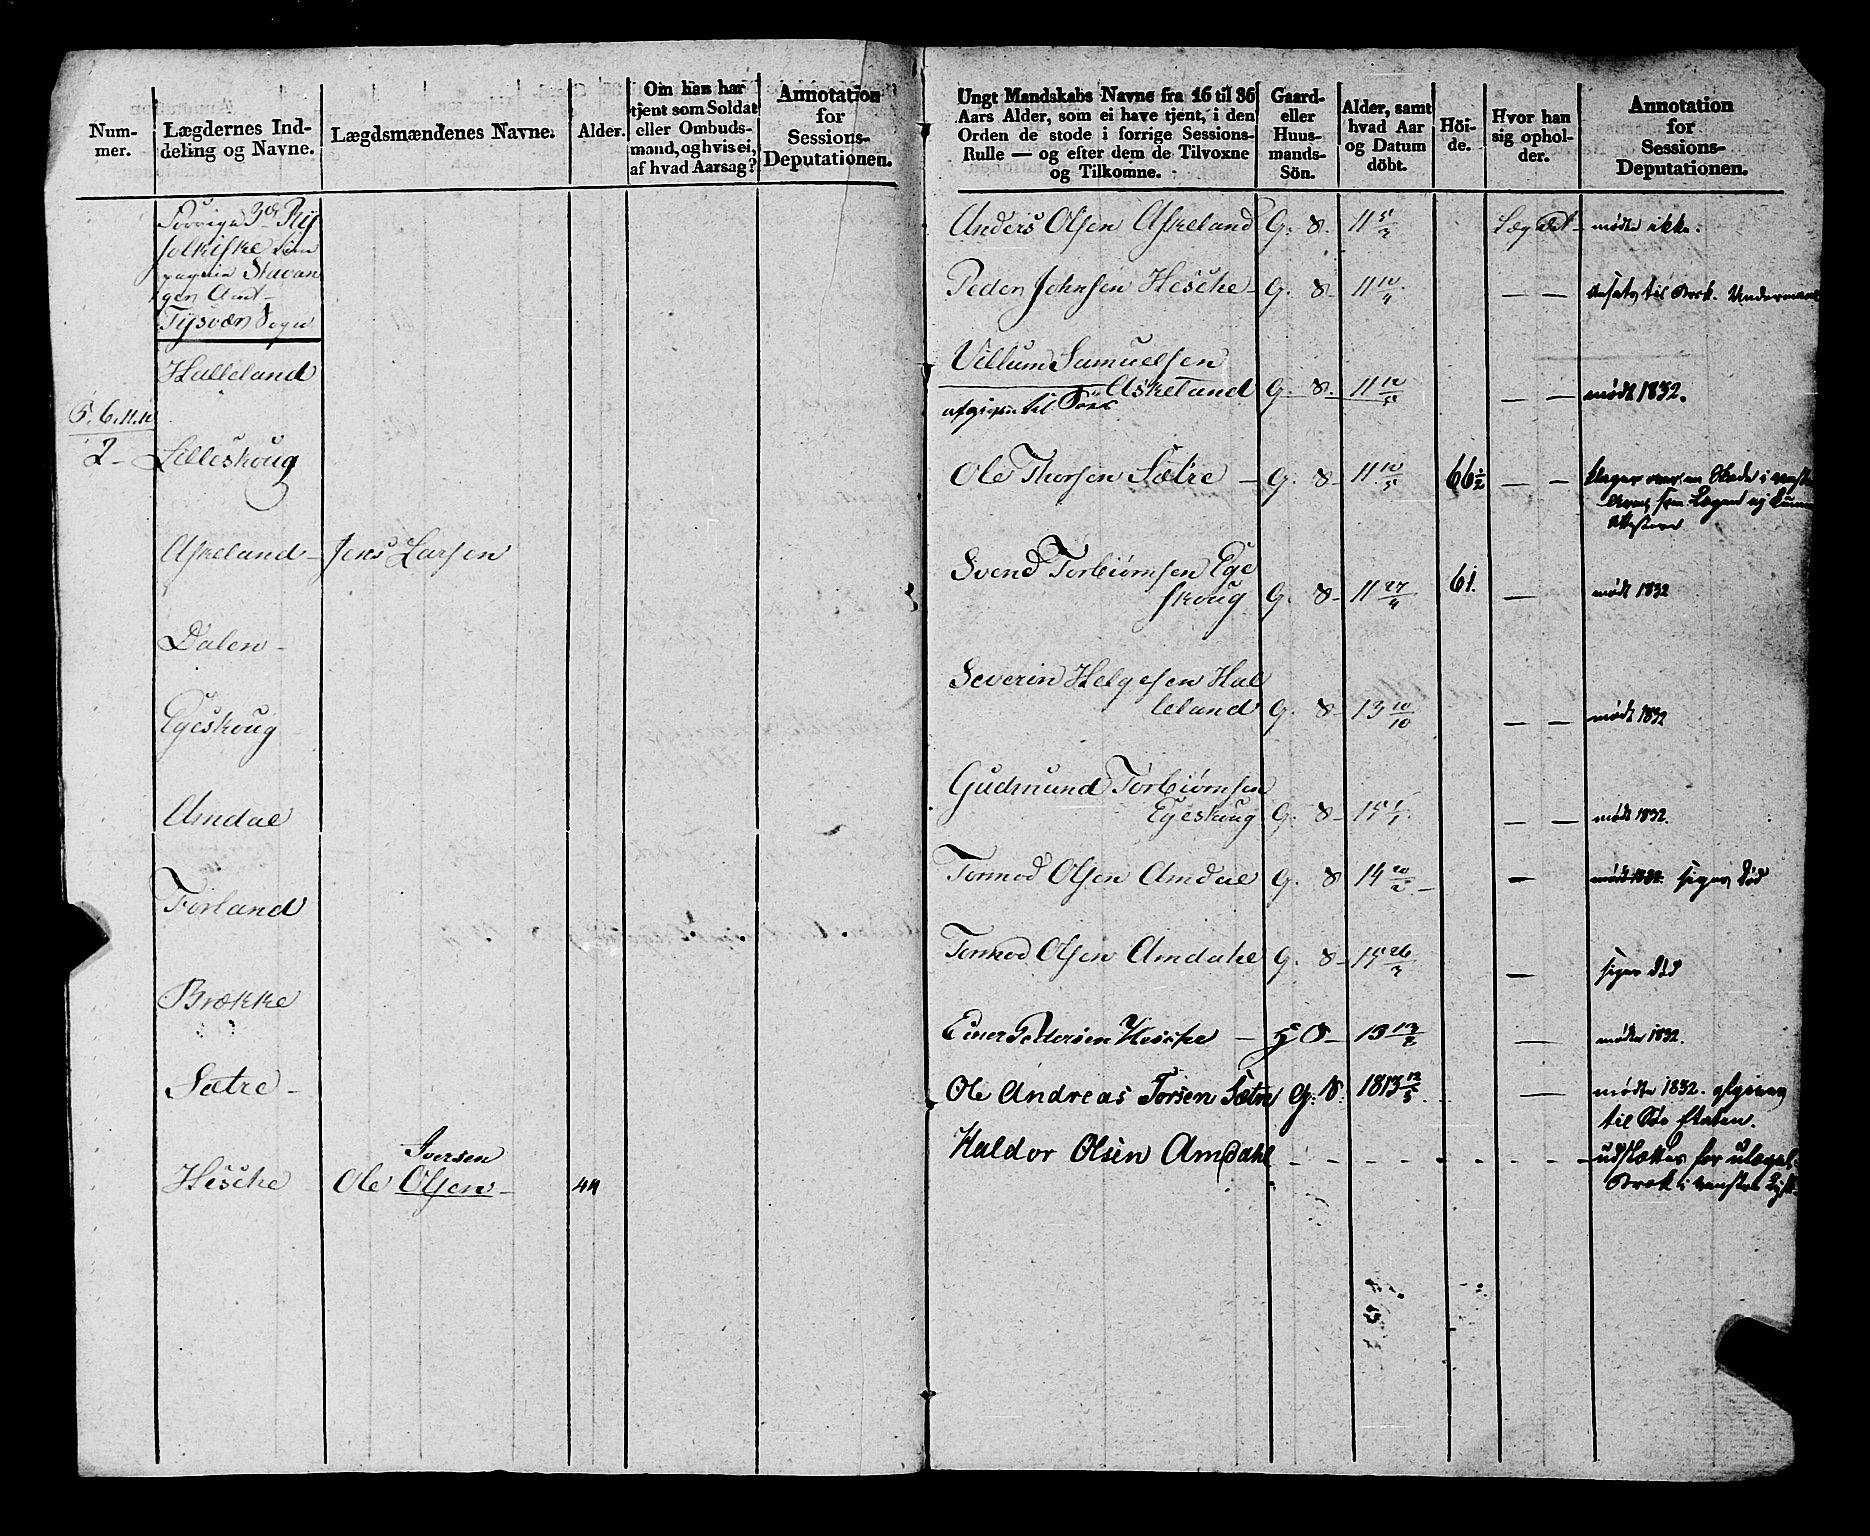 Num-
mer.
Lægdernes Ind-
deling og Navne.
Lægdsmændenes Navne.
Alder.
Om han har
tjent som Soldat
eller Ombuds-
mand, og hvis ei,
af hvad Aarsag?
Annotation
for
Sessions-
Deputationen.
Forrige 3die Ryf
Stavan
gers Amt
Tysvær Sogn
Halleland
5. 6. 11. 12
2 - Lilleskoug
Askeland - Jens Larsen
Dalen -
Egeskoug
Amdal
Førland
Brække
Sætre -
Iversen
Hesche Ole Olsen - 44
Ungt Mandskabs Navne fra 16 til 36
Aars Alder, som ei have tjent, i den
Orden de stode i forrige Sessions-
Rulle — og efter dem de Tilvoxne
og Tilkomne.
Gaard-
eller
Huus-
mands-
Sön.
Alder, samt
hvad Aar
og Datum
döbt.
Höi-
de.
Hvor han
sig ophol-
der.
Annotation
for
Sessions-
Deputationen.
Anders Olsen Askeland G. 8. 11 5/2 Lægdet - mødte ikke.
Peder Johnsen Hesche - G. 8 - 11 10/4 — — Ansat til Undermand
Villum Samuelsen
Askeland G. 8. 11 12/5 — — mødt 1832.
afgiven til Søe
Ole Thorsen Sætre - G. 8 - 11 10/5 66 1/2 — — klager over en Skade i venstre
Svend Torbiørnsen Ege
skoug G. 8 - 11 27/4 61. — mødt 1832
Severin Helgesen Hal
leland G. 8 - 13 10/10 — — mødt 1832
Gudmund Torbiørnsen
Egeskoug G. 8 - 15 1/1 — — mødt 1832.
Tormod Olsen Amdal G. 8 14 20/2 - — mødt 1832. siges død
Tormod Olsen Amdahl G. 8 - 15 26/3 — siges død
Einer Pedersen Hesche - 13 13/2 — mødte 1832.
Ole Andreas Torsen Sætre G. 8. 1813 12/5 — mødte 1832. afgiven
til Søe Etaten.
Haldor Olsen Amdahl - - - - - - - - udsættes for ulægel.
Bræk i venstre Lysk